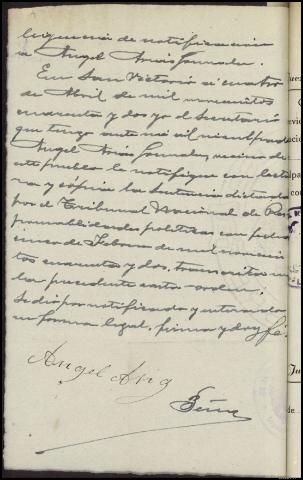 ligencia de notificación
a Angel Arias González.
En San Victorio a cuatro
de Abril de mil novecientos
cuarenta y dos yo el Secretario
que tengo ante mi al nombrado
Angel Arias González, vecino de
este pueblo le notifique con lectu
ra y copia la Sentencia dictada
por el Tribunal Nacional de Res
ponsabilidades politicas con fecha
cinco de Febrero de mil novecien
tos cuarenta y dos, transcrita en
la precedente carta-orden.
Se dio por notificado y enterado
en forma legal, firma y doy fé.
Angel Arias